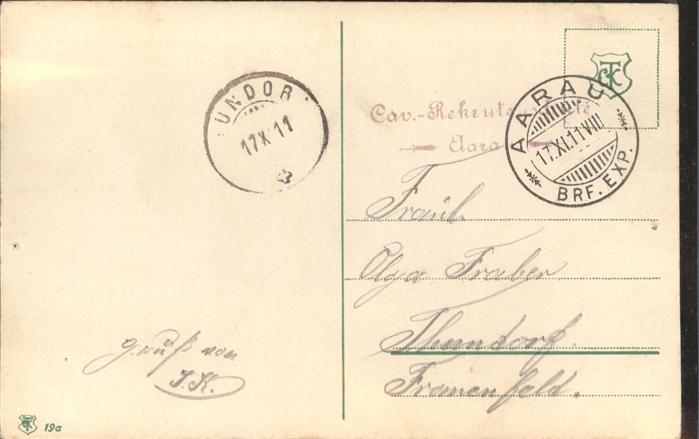 UNDOR
17 X 11
TCK
Cav.-Rekrute
Aara
AARAU
17.XI.11 VIII
BRF. EXP.
Fräul.
Olga Fraber
Thundorf.
Frauenfeld.
gruß von
J.K.
TCK
19a